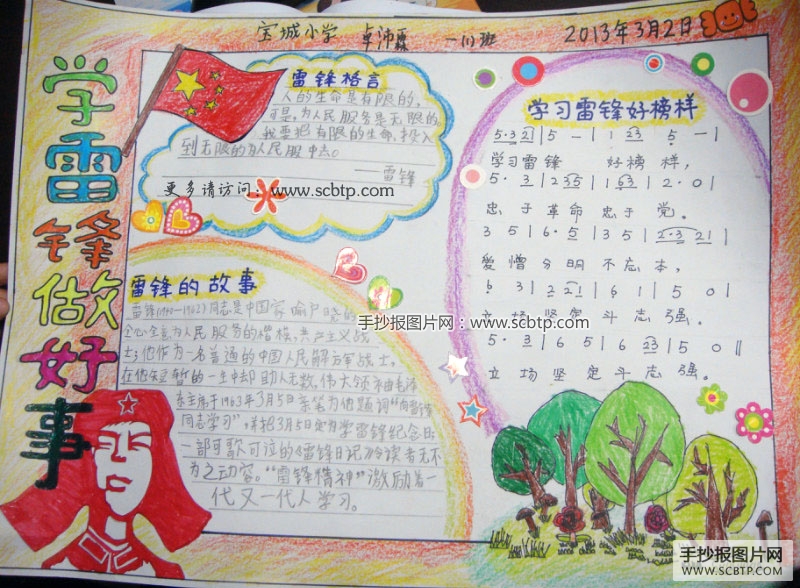 宝城小学 卓沛霖 一(1)班 2013年3月2日
学雷锋做好事
雷锋格言
人的生命是有限的,
可是,为人民服务是无限的
我要把有限的生命,投入
到无限的为人民服中去。
——雷锋
更多请访问:www.scbtp.com
雷锋的故事
雷锋(1940-1962)同志是中国家喻户晓的
全心全意为人民服务的楷模,共产主义战
士;他作为一名普通的中国人民解放军战士,
在他短暂的一生中却助人无数,伟大领袖毛泽
东主席于1963年3月5日亲笔为他题词“向雷锋
同志学习”,并把3月5日定为学雷锋纪念日
一部可歌可泣的《雷锋日记》令读者无不
为之动容。“雷锋精神”激励着一
代又一代人学习。
手抄报图片网:www.scbtp.com
学习雷锋好榜样
5·3 2 | 5 — | 1 2 3 5 — |
学习雷锋 好榜样,
5·3 | 2 3 5 | 1 6 3 | 2·0 |
忠于革命忠于党。
3 5 | 6·5 | 3 5 | 2·3 2 1 |
爱憎分明不忘本,
6 3 | 2 2 1 | 6 1 | 5 0 |
立场坚定斗志强。
5·3 | 6 5 | 6 2 3 | 5 0 ‖
立场坚定斗志强。
手抄报图片网
WWW.SCBTP.COM